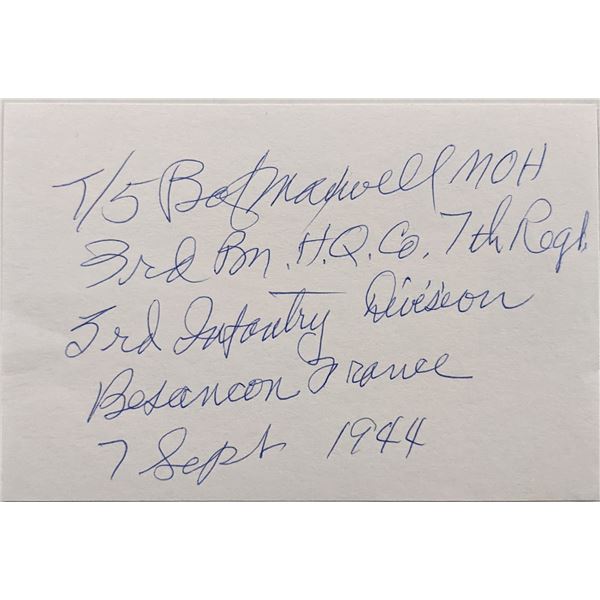 T/5 Bob Maxwell MOH
3rd Bn. H.Q. Co. 7th Regt.
3rd Infantry Division
Besancon France
7 Sept 1944